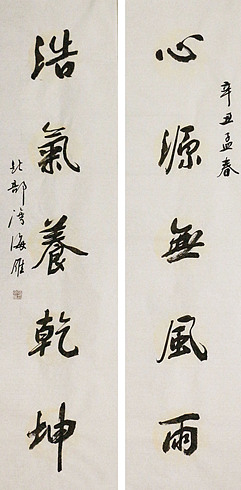 心源無風雨
辛丑孟春
浩氣養乾坤
北部湾海雁